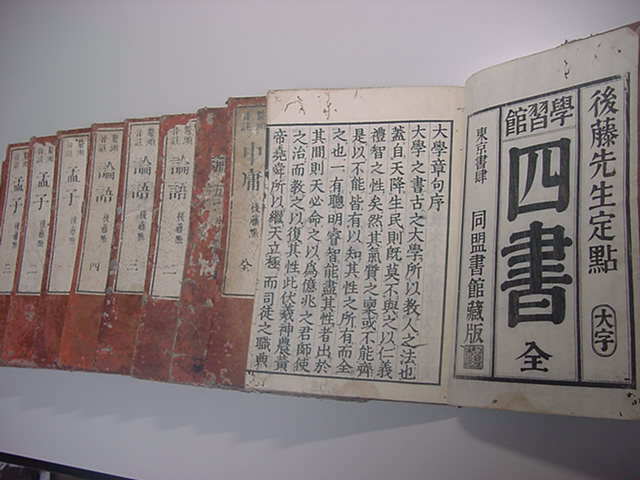 後藤先生定點
大字
學習館
四書
全
東京書肆
同盟書館藏版
大學章句序
大學之書古之大學所以教人之法也
蓋自天降生民則既莫不與之以仁義
禮智之性矣然其氣質之稟或不能齊
是以不能皆有以知其性之所有而全
之也一有聰明睿智能盡其性者出於
其間則天必命之以爲億兆之君師使
之治而教之以復其性此伏羲神農黃
帝堯舜所以繼天立極而司徒之職典
中庸
全
論語
二
論語
三
論語
四
孟子
孟子
孟子